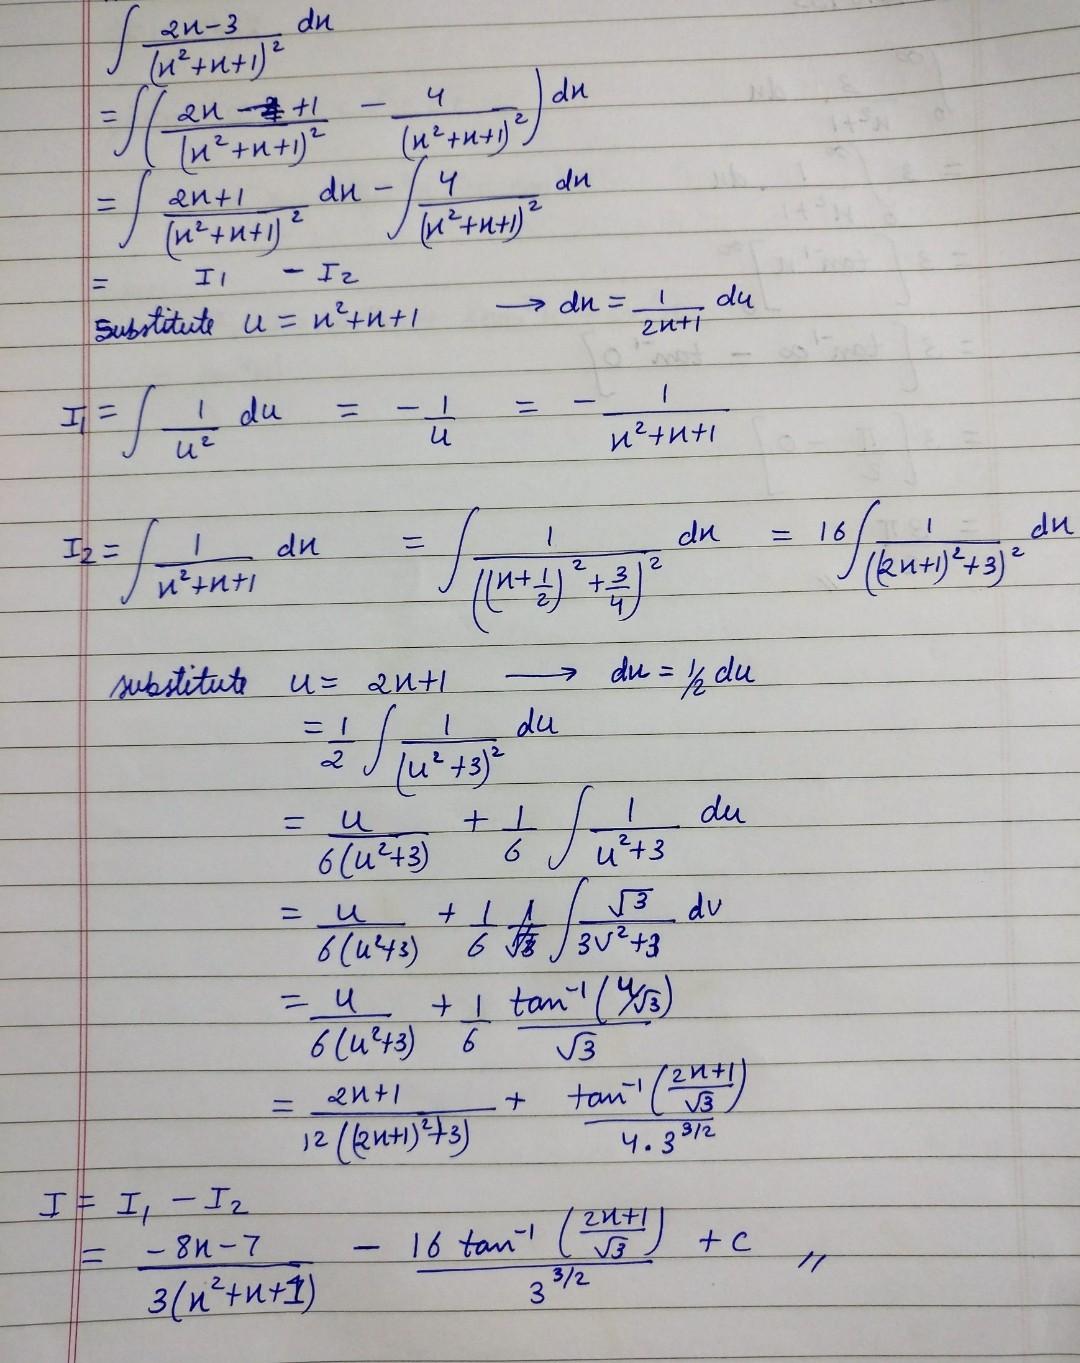 ∫ 2x-3/(x²+x+1)² dx
= ∫ ( 2x +1/(x²+x+1)² - 4/(x²+x+1)² ) dx
= ∫ 2x+1/(x²+x+1)² dx - ∫ 4/(x²+x+1)² dx
= I1 - I2
Substitute u = x²+x+1 → dx = 1/2x+1 du
I1 = ∫ 1/u² du = - 1/u = - 1/x²+x+1
I2 = ∫ 1/x²+x+1 dx = ∫ 1/((x+1/2)²+3/4)² dx = 16 ∫ 1/((2x+1)²+3)² dx
substitute u = 2x+1 → du = 1/2 du
= 1/2 ∫ 1/(u²+3)² du
= u/6(u²+3) + 1/6 ∫ 1/u²+3 du
= u/6(u²+3) + 1/6 ∫ √3/3v²+3 dv
= u/6(u²+3) + 1/6 tan⁻¹(u/√3)/√3
= 2x+1/12((2x+1)²+3) + tan⁻¹(2x+1/√3)/4.3^3/2
I = I1 - I2
= -8x-7/3(x²+x+1) - 16 tan⁻¹(2x+1/√3)/3^3/2 + c //